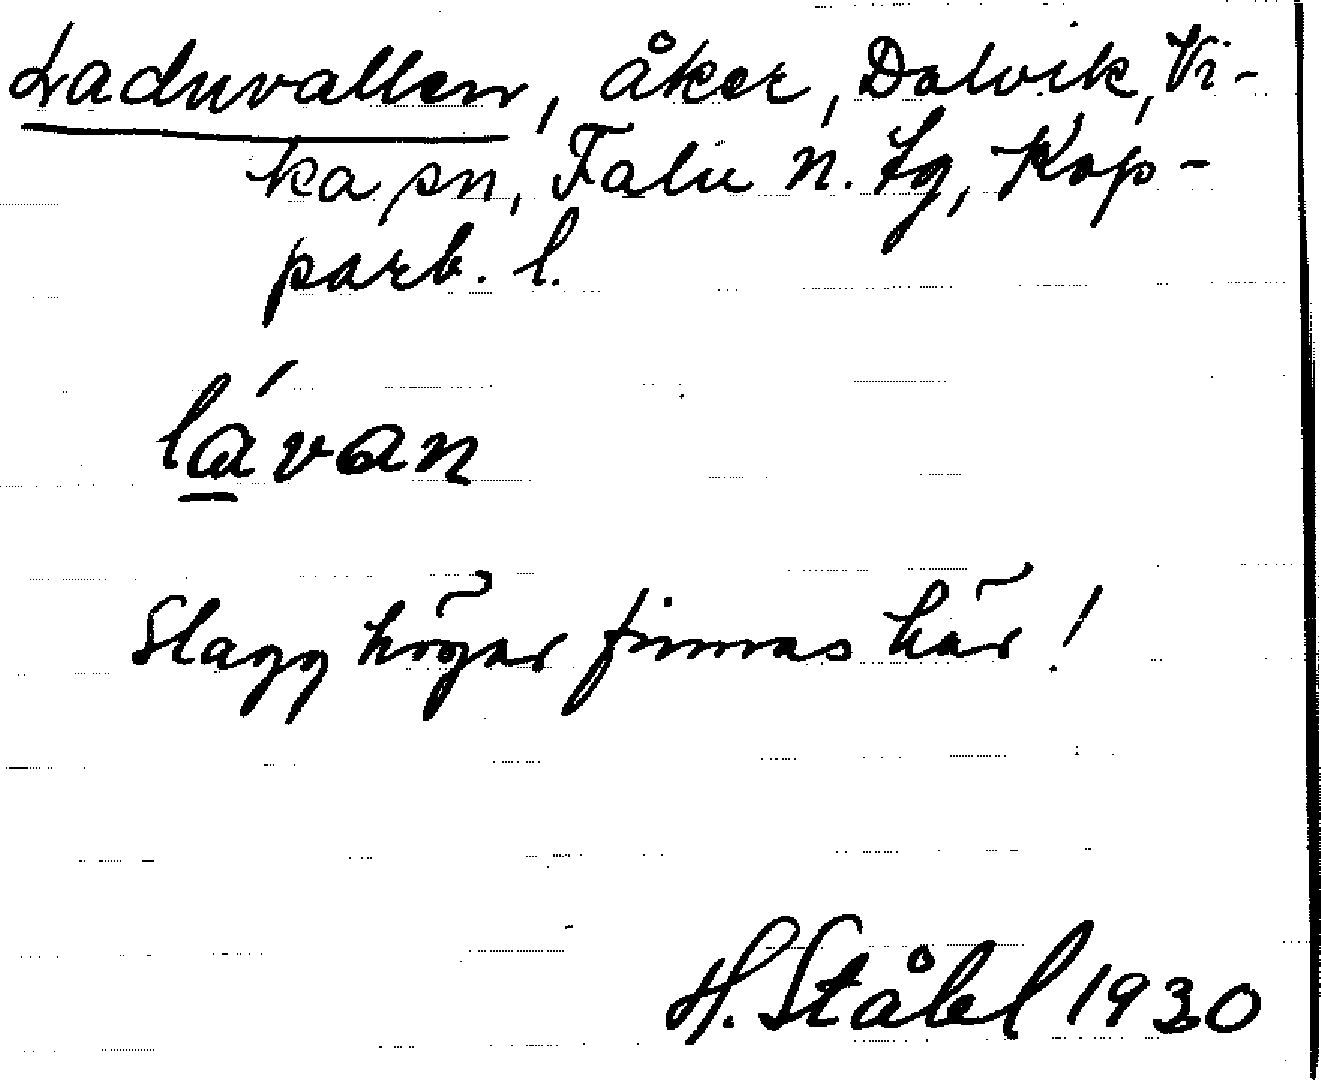 Laduvallen, åker, Dalvik, Vi-
ka sn, Falu n. tg, Kop-
parb. l.
lávan
Slagghögar finnas här!
H. Ståhl 1930